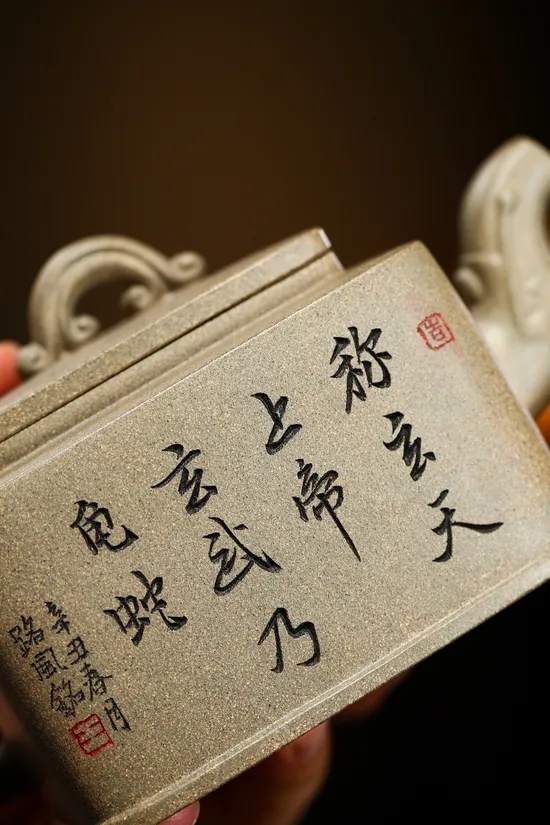 称玄天
上帝乃
玄武
龟蛇
辛丑春月
路风铭